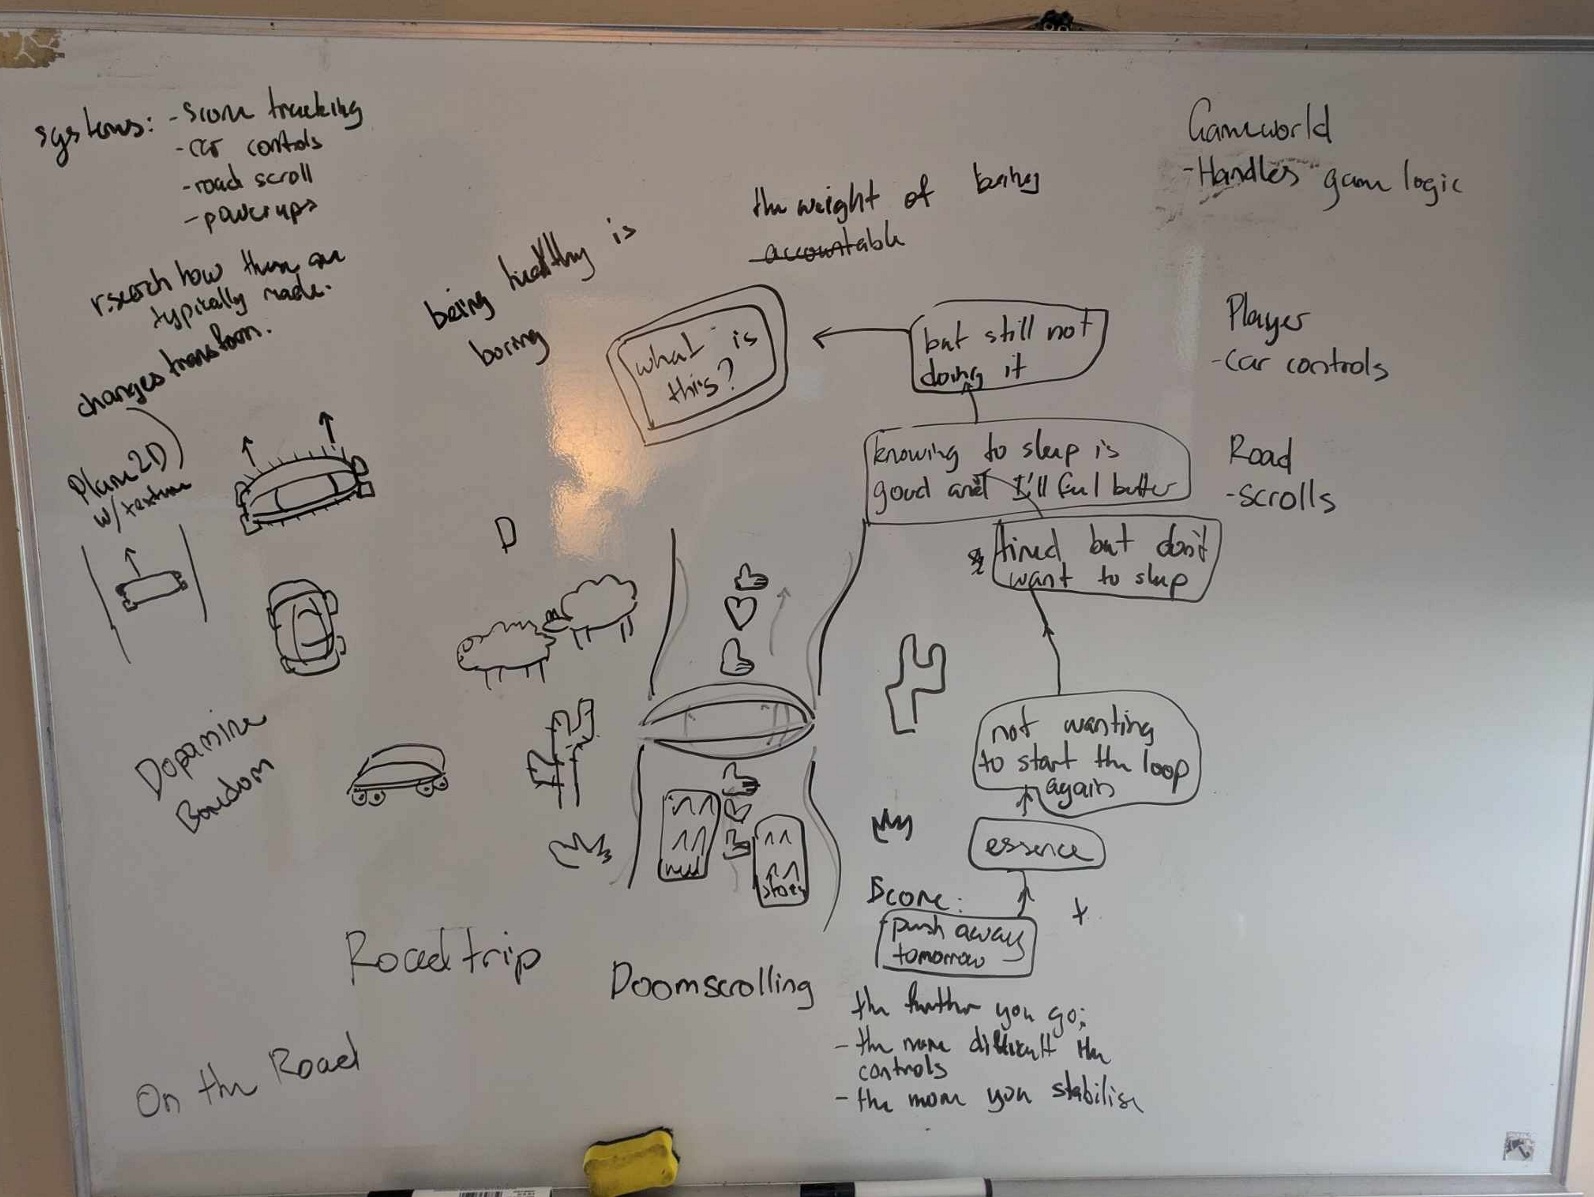 systems: - score tracking
- car controls
- road scroll
- powerups
research how these are
typically made.
changes transform.
Plane2D
w/ texture
being healthy is
boring
the weight of being
accountable
what is
this?
but still not
doing it
knowing to sleep is
good and I'll feel better
tired but don't
want to sleep
not wanting
to start the loop
again
essence
Score:
push away
tomorrow
the further you go;
- the more difficult the
controls
- the more you stabilise
Gameworld
- Handles game logic
Player
- car controls
Road
- scrolls
D
Dopamine
Boredom
story
Roadtrip
Doomscrolling
On the Road